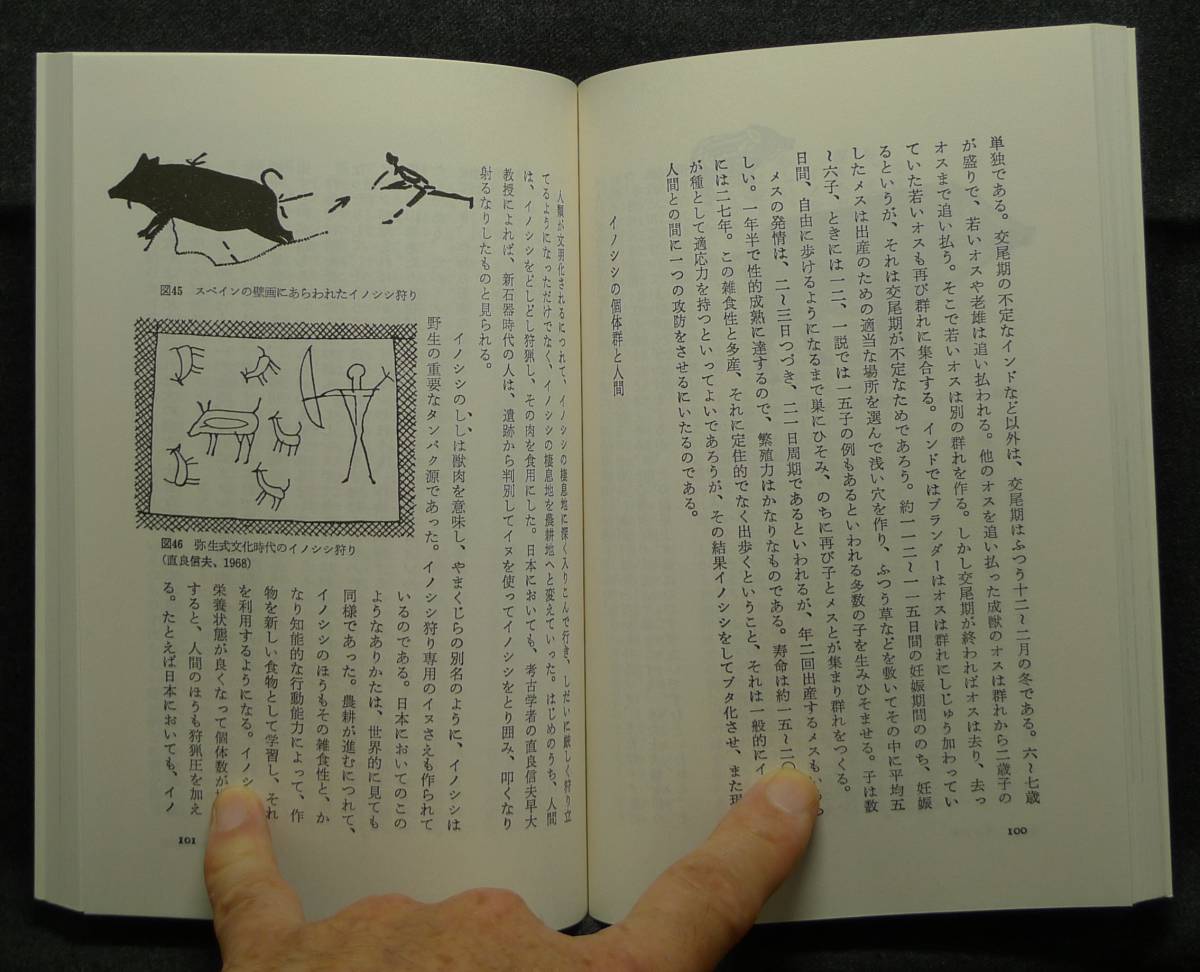 単独である。交尾期の不定なインドなど以外は、交尾期はふつう十二~二月の冬である。六~七歳
が盛りで、若いオスや老雄は追い払われる。他のオスを追い払った成獣のオスは群れから二歳子の
オスまで追い払う。そこで若いオスは別の群れを作る。しかし交尾期が終わればオスは去り、去っ
ていた若いオスも再び群れに集合する。インドではブランダーはオスは群れにしじゅう加わってい
るというが、それは交尾期が不定なためであろう。約一一二~一一五日間の妊娠期間ののち、妊娠
したメスは出産のための適当な場所を選んで浅い穴を作り、ふつう草などを敷いてその中に平均五
~六子、ときには一二、一説では一五子の例もあるといわれる多数の子を生みひそませる。子は数
日間、自由に歩けるようになるまで巣にひそみ、のちに再び子とメスとが集まり群れをつくる。
メスの発情は、二~三日つづき、二一日周期であるといわれるが、年二回出産するメスも
しい。一年半で性的成熟に達するので、繁殖力はかなりなものである。寿命は約一五~二〇
には二七年。この雑食性と多産、それに定住的でなく出歩くということ、それは一般的にイ
が種として適応力を持つといってよいであろうが、その結果イノシシをしてブタ化させ、また現
人間との間に一つの攻防をさせるにいたるのである。
イノシシの個体群と人間
100
人類が文明化されるにつれて、イノシシの棲息地に深く入りこんで行き、しだいに厳しく狩り立
てるようになっただけでなく、イノシシの棲息地を農耕地へと変えていった。はじめのうち、人間
は、イノシシをどしどし狩猟し、その肉を食用にした。日本においても、考古学者の直良信夫早大
教授によれば、新石器時代の人は、遺跡から判別してイヌを使ってイノシシをとり囲み、叩くなり
射るなりしたものと見られる。
イノシシのししは獣肉を意味し、やまくじらの別名のように、イノシシは
野生の重要なタンパク源であった。イノシシ狩り専用のイヌさえも作られて
いるのである。日本においてのこの
ようなありかたは、世界的に見ても
同様であった。農耕が進むにつれて、
イノシシのほうもその雑食性と、か
なり知能的な行動能力によって、作
物を新しい食物として学習し、それ
を利用するようになる。イノシ
栄養状態が良くなって個体数が
すると、人間のほうも狩猟圧を加え
る。たとえば日本においても、イノ
図45 スペインの壁画にあらわれたイノシシ狩り
図46 弥生式文化時代のイノシシ狩り
(直良信夫、1968)
101